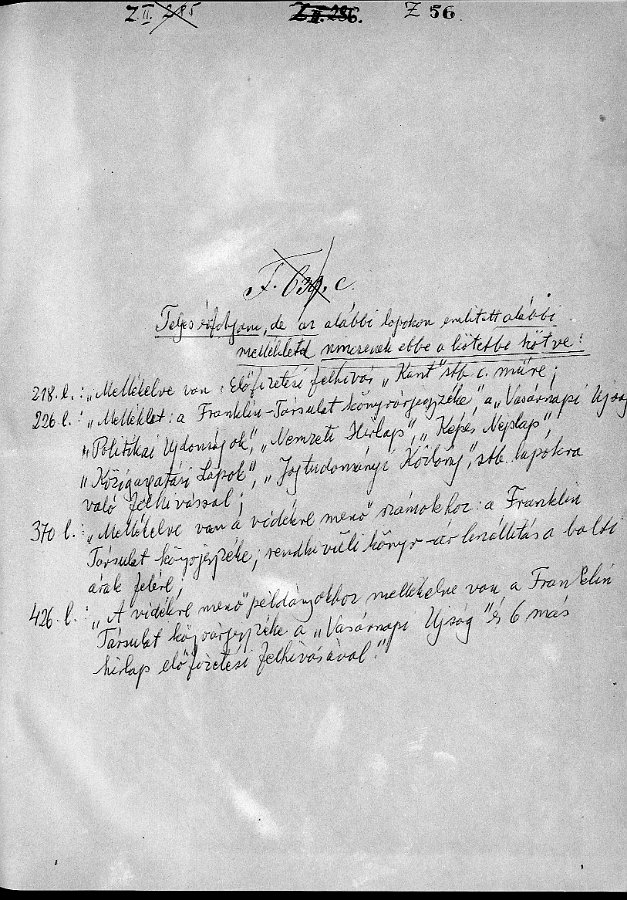 Z II. 285 Z II. 286. Z 56
F. 630. c.
Teljes évfolyam, de az alábbi lapokon említett alábbi
mellékletek nincsenek ebbe a kötetbe kötve:
218. l.: „Mellékelve van: Előfizetési felhívás „Kant" stb. c. műre;
226. l.: „Melléklet: a Franklin-Társulat könyvárjegyzéke," a „Vasárnapi Ujság
„Politikai Ujdonságok", „Nemzeti Hirlap", „Képes Néplap",
„Közigazgatási Lapok", „Jogtudományi Közlöny", stb. lapokra
való felhívással;
370 l.: „Mellékelve van a vidékre menő számokhoz: a Franklin
Társulat könyvjegyzéke; rendkívüli könyv-ár leszállítás a bolti
árak felére;
426. l.: „A vidékre menő példányokhoz mellékelve van a Franklin
Társulat könyvárjegyzéke a „Vasárnapi Ujság" és 6 más
hírlap előfizetési felhívásával."